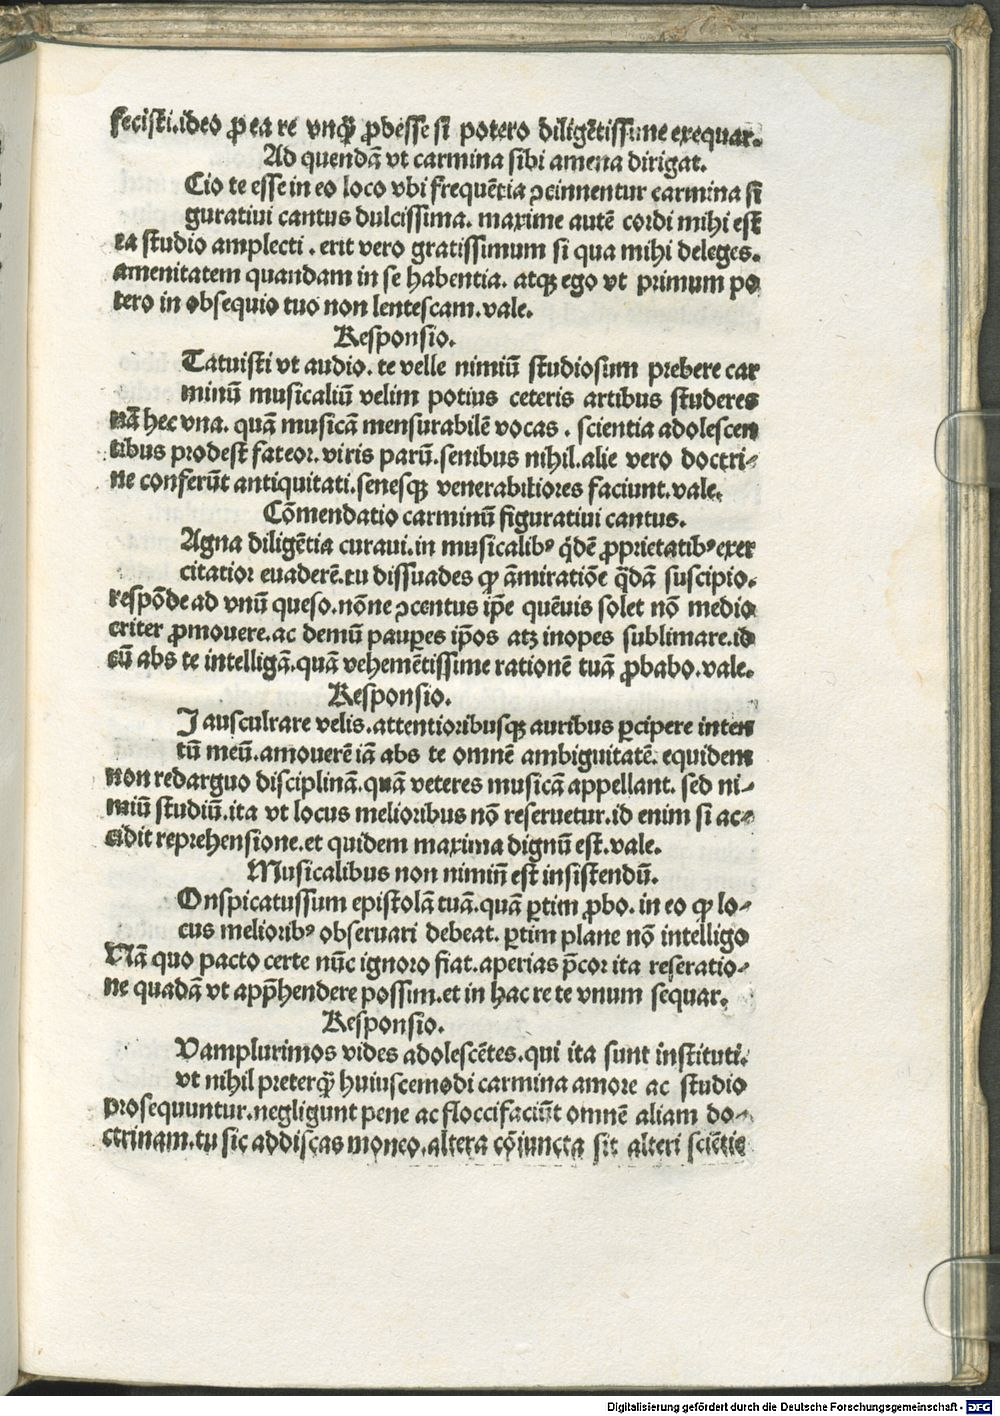 fecisti.ideo ꝓ ea re vnqͣꝫ ꝓdesse si potero diligẽtissime exequar.
Ad quendã vt carmina sibi amena dirigat.
Cio te esse in eo loco vbi frequẽtia ꝯcinnentur carmina fi
guratiui cantus dulcissima. maxime autẽ cordi mihi est
ea studio amplecti . erit vero gratissimum si qua mihi deleges.
amenitatem quandam in se habentia. atqꝫ ego vt primum po
tero in obsequio tuo non lentescam.vale.
Responsio.
Tatuisti vt audio. te velle nimiũ studiosum prebere car
minũ musicaliũ velim potius ceteris artibus studeres
nã hec vna. quã musicã mensurabilẽ vocas . scientia adolescen
tibus prodest fateor. viris parũ.senibus nihil.alie vero doctri⸗
ne conferũt antiquitati.senesqꝫ venerabiliores faciunt.vale.
Cõmendatio carminũ figuratiui cantus.
Agna diligẽtia curaui.in musicalibꝰ q̇dẽ ꝓprietatibꝰ exer
citatior euaderẽ.tu dissuades ꝙ ãmiratiõe q̃dã suscipio.
respõde ad vnũ queso.nõne ꝯcentus ip̃e quẽuis solet nõ medio
criter ꝓmouere.ac demũ pauꝑes ip̃os atꝫ inopes sublimare.id
cũ abs te intelligã.quã vehemẽtissime rationẽ tuã ꝓbabo.vale.
Responsio.
I ausculrare velis.attentioribusqꝫ auribus ꝑcipere inten
tũ meũ.amouerẽ iã abs te omnẽ ambiguitatẽ. equidem
non redarguo disciplinã.quã veteres musicã appellant. sed ni⸗
miũ studiũ.ita vt locus melioribus nõ reseruetur.id enim si ac⸗
cidit reprehensione.et quidem maxima dignũ est.vale.
Musicalibus non nimiũ est insistendũ.
Onspicatussum epistolã tuã.quã ꝑtim ꝓbo. in eo ꝙ lo⸗
cus melioribꝰ obseruari debeat. ꝑtim plane nõ intelligo
Nã quo pacto certe nũc ignoro fiat.aperias p̃cor ita reseratio⸗
ne quadã vt app̃hendere possim.et in hac re te vnum sequar.
Responsio.
Vamplurimos vides adolescẽtes.qui ita sunt instituti.
vt nihil preterqͣꝫ huiuscemodi carmina amore ac studio
prosequuntur.negligunt pene ac floccifaciũt omnẽ aliam do⸗
ctrinam.tu sic addiscas moneo.altera cõiuncta sit alteri sciẽtie
Digitalisierung gefördert durch die Deutsche Forschungsgemeinschaft - DFG